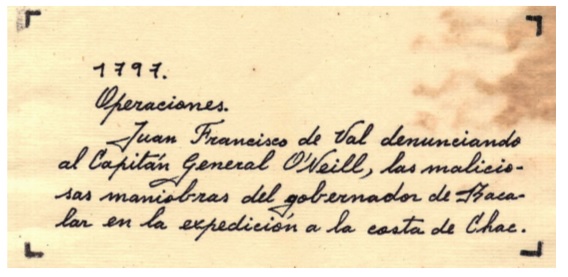 1797.
Operaciones.
Juan Francisco de Val denunciando
al Capitán General O'Neill, las malicio-
sas maniobras del gobernador de Baca-
lar en la expedición a la costa de Chac.